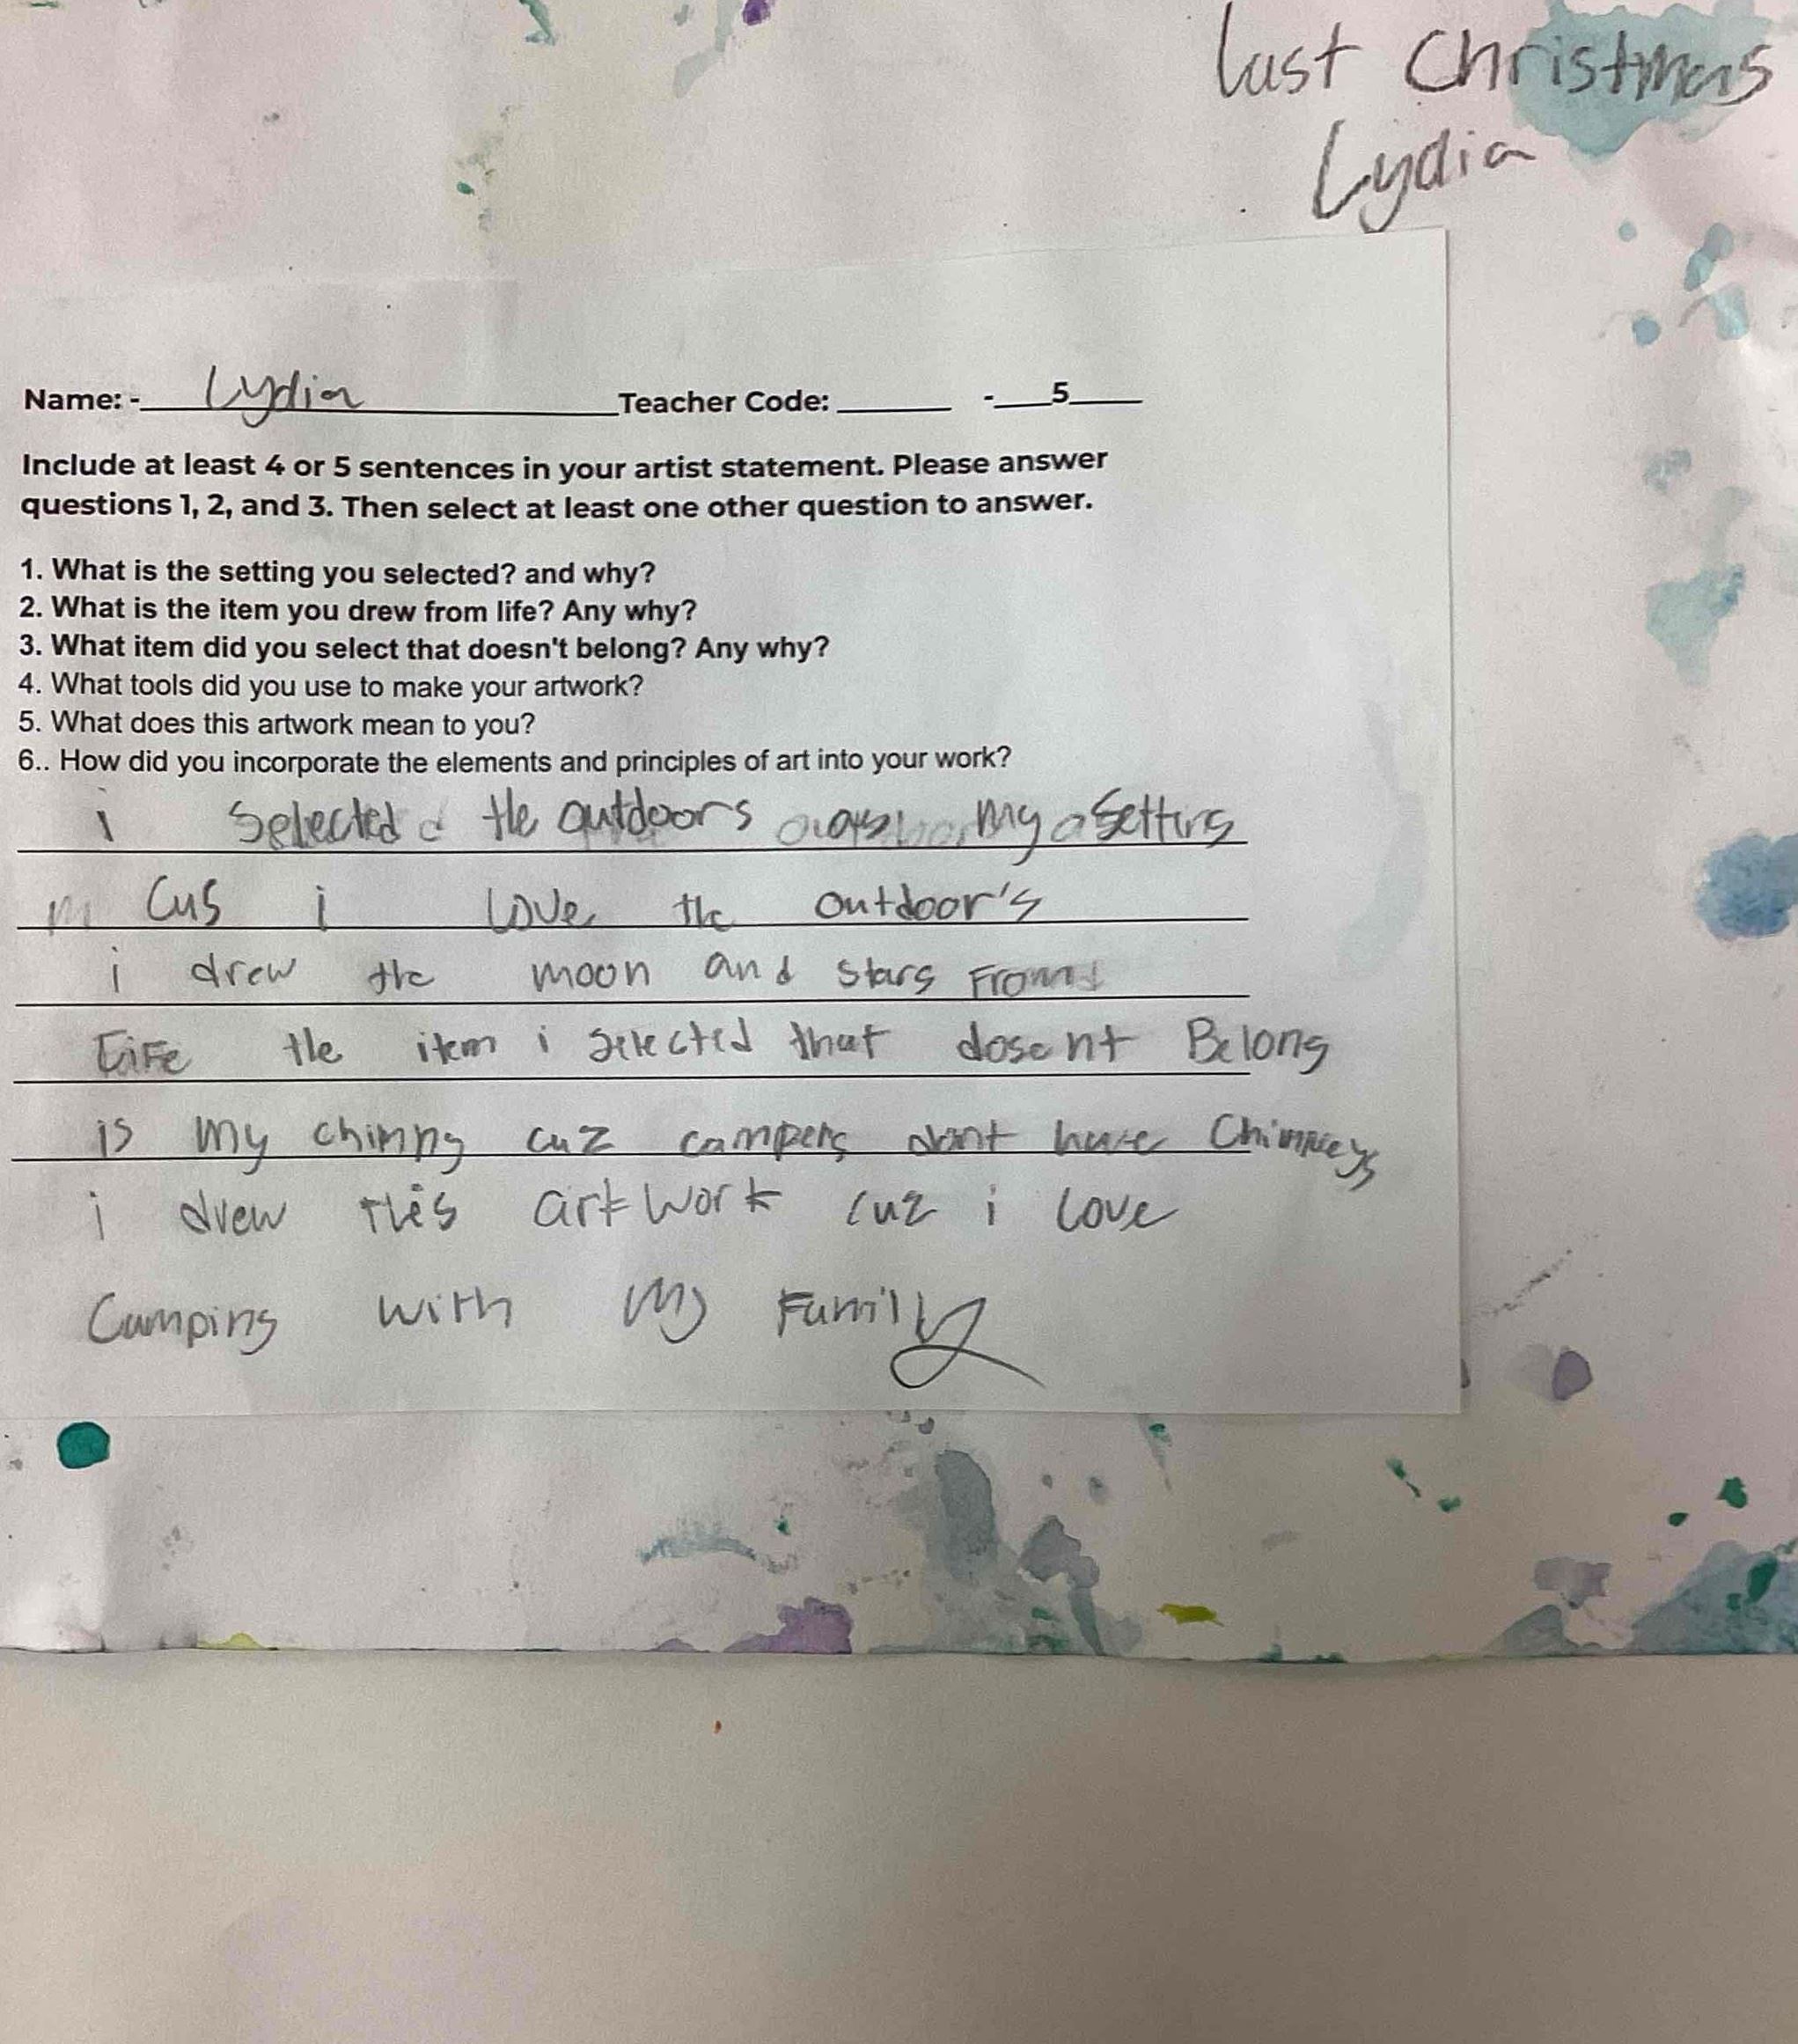 last Christmas
Lydia
Name: - Lydia Teacher Code: ______ -___5____
Include at least 4 or 5 sentences in your artist statement. Please answer
questions 1, 2, and 3. Then select at least one other question to answer.
1. What is the setting you selected? and why?
2. What is the item you drew from life? Any why?
3. What item did you select that doesn't belong? Any why?
4. What tools did you use to make your artwork?
5. What does this artwork mean to you?
6.. How did you incorporate the elements and principles of art into your work?
i selected the outdoors as my setting
cus i love the outdoor's
i drew the moon and stars From
Life the item i selected that dosent Belong
is my chimny cuz campers dont have Chimneys
i drew this artwork cuz i love
Camping with my Family